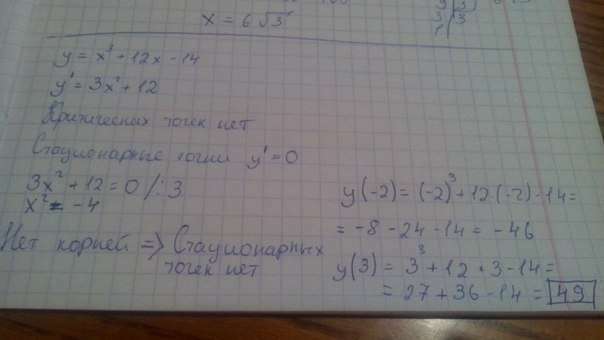 x = 6√3
y = x³ + 12x - 14
y' = 3x² + 12
Критических точек нет
Стационарные точки y' = 0
3x² + 12 = 0 /:3
x² = -4
Нет корней => Стационарных
точек нет
y(-2) = (-2)³ + 12·(-2) - 14 =
= -8 - 24 - 14 = -46
y(3) = 3³ + 12 · 3 - 14 =
= 27 + 36 - 14 = 49